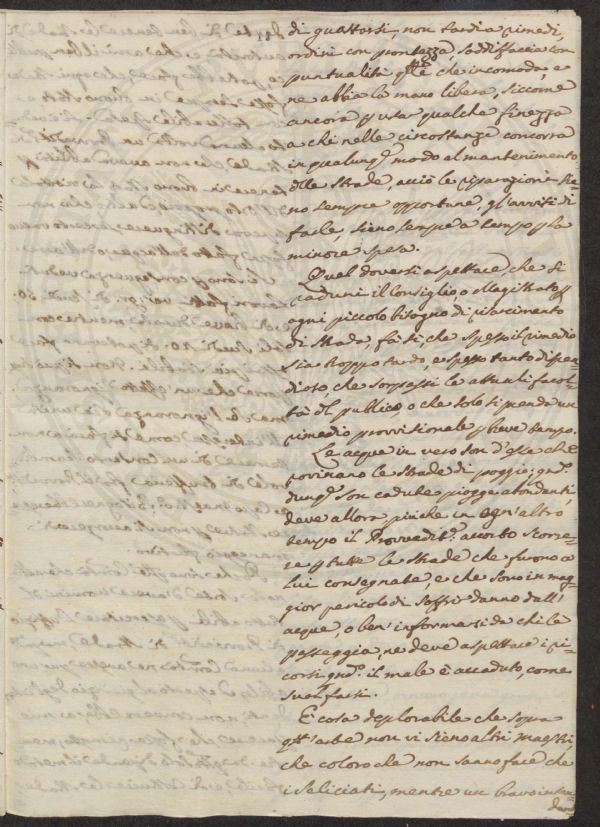 di guastarsi, non tardi a rimedi,
ordini con prontezza, soddisfaccia con
puntualità qllo che incomoda, e
ne abbia la mano libera, siccome
ancora p usar qualche finezza
a chi nelle circostanze concorra
in qualunq. modo al mantenimento
delle strade, acciò le riparazioni sie-
no sempre opportune, gl'avvisi di
facile, sieno sempre a tempo, p la
minore spesa.
Quel doversi aspettare che si
raduni il Consiglio, o Magistrato p
ogni piccolo bisogno di risarcimento
di strada, fa sì, che spesso il rimedio
sia troppo tardo, e spesso tanto dispen-
dioso, che sorpassi le attuali facol-
tà dl publico, o che solo si prenda un
rimedio provvisionale p breve tempo.
Le acque in vero son d'esse che
rovinano le strade di poggio; qndo
dunq. son cadute piogge abondanti,
deve allora più che in ogn'altro
tempo il Provvedit.e accorto scorre-
re p tutte le strade che furono a
lui consegnate, e che sono in mag-
gior pericolo di soffrir danno dall'
acque, o ben' informarsi da chi le
passeggia, ne deve aspettare i ri-
corsi qndo il male è accaduto, come
suol farsi.
E' cosa deplorabile che sopra
qst'arte non vi sieno altri maestri,
che coloro che non sanno fare che
i seliciati, mentre un bravo inten-
dente